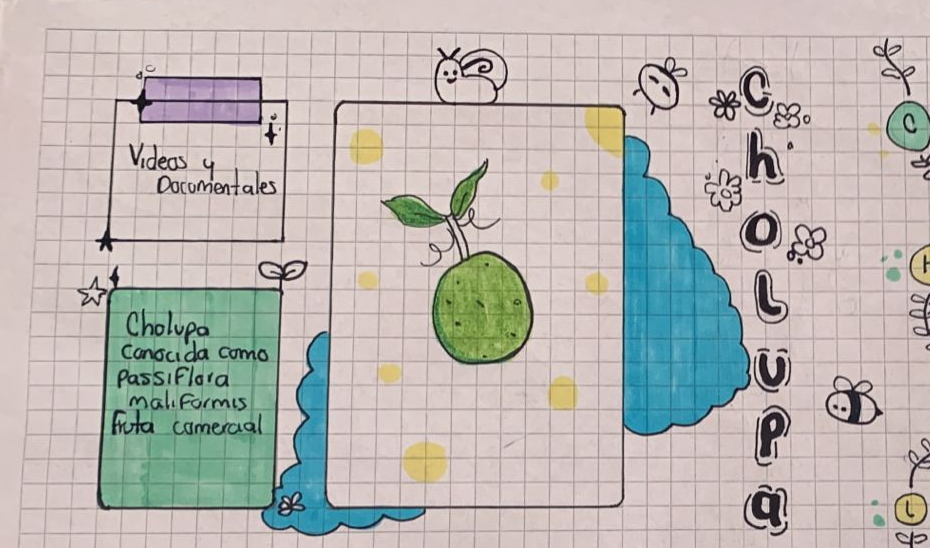 Videos y
Documentales
Cholupa
Conocida como
Passiflora
maliformis
fruta comercial
C
h
O
L
U
P
a
C
H
L